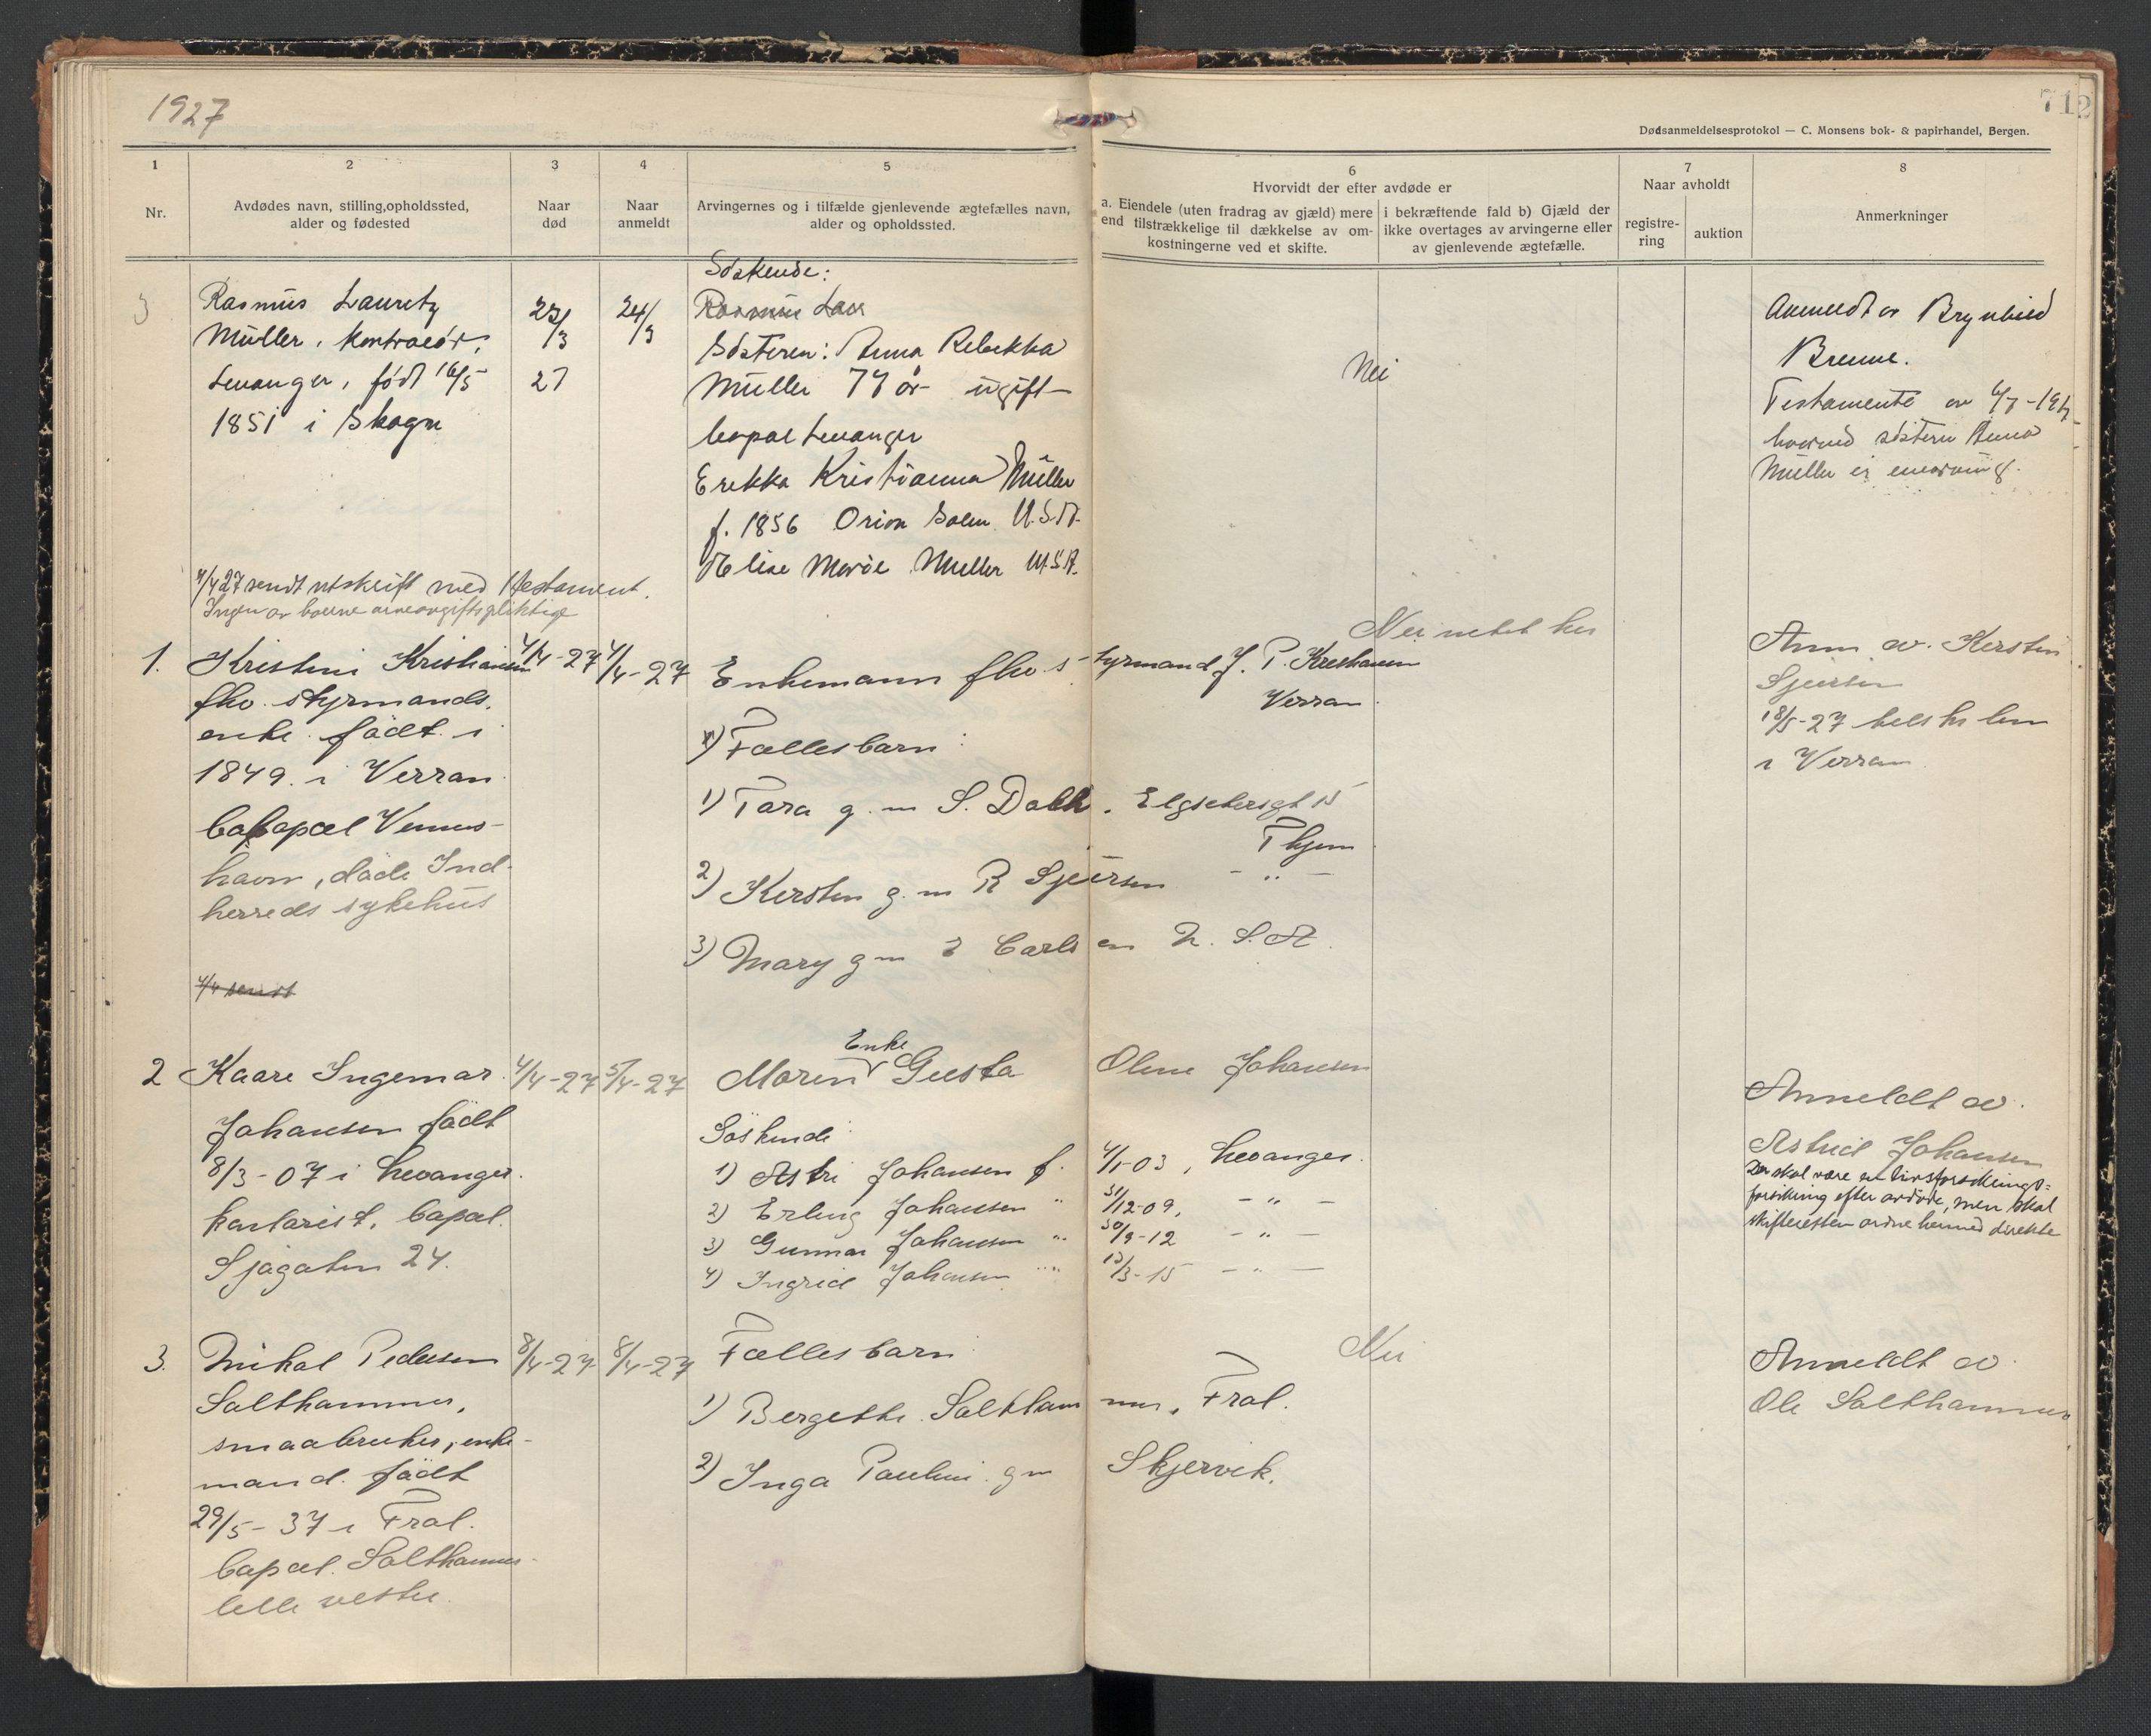 1927
712
Dødsanmeldelsesprotokol — C. Monsens bok- & papirhandel, Bergen.
1
Nr.
2
Avdødes navn, stilling, opholdssted,
alder og fødested
3
Naar
død
4
Naar
anmeldt
5
Arvingernes og i tilfælde gjenlevende ægtefælles navn,
alder og opholdssted.
6
Hvorvidt der efter avdøde er
a. Eiendele (uten fradrag av gjæld) mere
end tilstrækkelige til dækkelse av om-
kostningerne ved et skifte.
i bekræftende fald b) Gjæld der
ikke overtages av arvingerne eller
av gjenlevende ægtefælle.
7
Naar avholdt
registre-
ring
auktion
8
Anmerkninger
3
Rasmus Lauretz
Müller, kontrolør,
Levanger, født 16/5
1851 i Skogn
23/3
27
24/3
Søskende:
Rasmus Laur
Søsteren: Anna Rebekka
Müller 77 år ugift
bopæl Levanger
Erekka Kristianna Müller
f. 1856 Orion Solem U.S.A.
Elise Marie Müller U.S.A.
Nei
Anmeldt av Brynhild
Brenne.
Testamente av
hvorved søsteren Anna
Müller er enearving.
4/4 27 sendt utskrift med 1 testament.
Ingen av boerne arveavgiftspliktige
1.
Kristine Kristiansen
fhv. styrmands.
enke. født. i
1849. i Verran
bopæl Venus-
havn, døde Ind-
herreds sykehus
4/4 sendt
4/4-27
4/4-27
Enkemann fhv styrmand J. P. Kristiansen
Verran
Fællesbarn:
1) Tora g. m S. Dalh. Elgsetersgt 15
Thjem
2) Kersten g. m R Sjeursen - " -
3) Mary g m E Carlsen U. S. A.
Nei intet her
Anm av. Kersten
Sjeursen
18/5-27 lensm
i Verran
2
Kaare Ingemar
Johansen født
8/3-07 i Levanger.
kontorist, bopæl.
Sjøgaten 24.
4/4-27
5/4-27
Enke
Maren Gusta Oline Johansen
Søskende
1) Astri Johansen f. 4/1-03, Levanger.
2) Erling Johansen " 31/12-09, - " -
3) Gunnar Johansen " 30/9-12 - " -
4) Ingrid Johansen " 13/3-15 - " -
Anmeldt av.
Astrid Johansen
Der skal være en livsforsikrings=
forsikring efter avdøde, men skal
skifteretten ordne hermed direkte
3.
Mikal Pedersen
Salthammer,
smaabruker, enke-
mand. født
29/5-37 i Frol.
bopæl. Salthammer-
lille vestre.
8/4-27
8/4-27
Fællesbarn
1) Bergitte. Salthammer, Frol.
2) Inga Pauline. gm Skjervik.
Nei
Anmeldt av.
Ole Salthammer